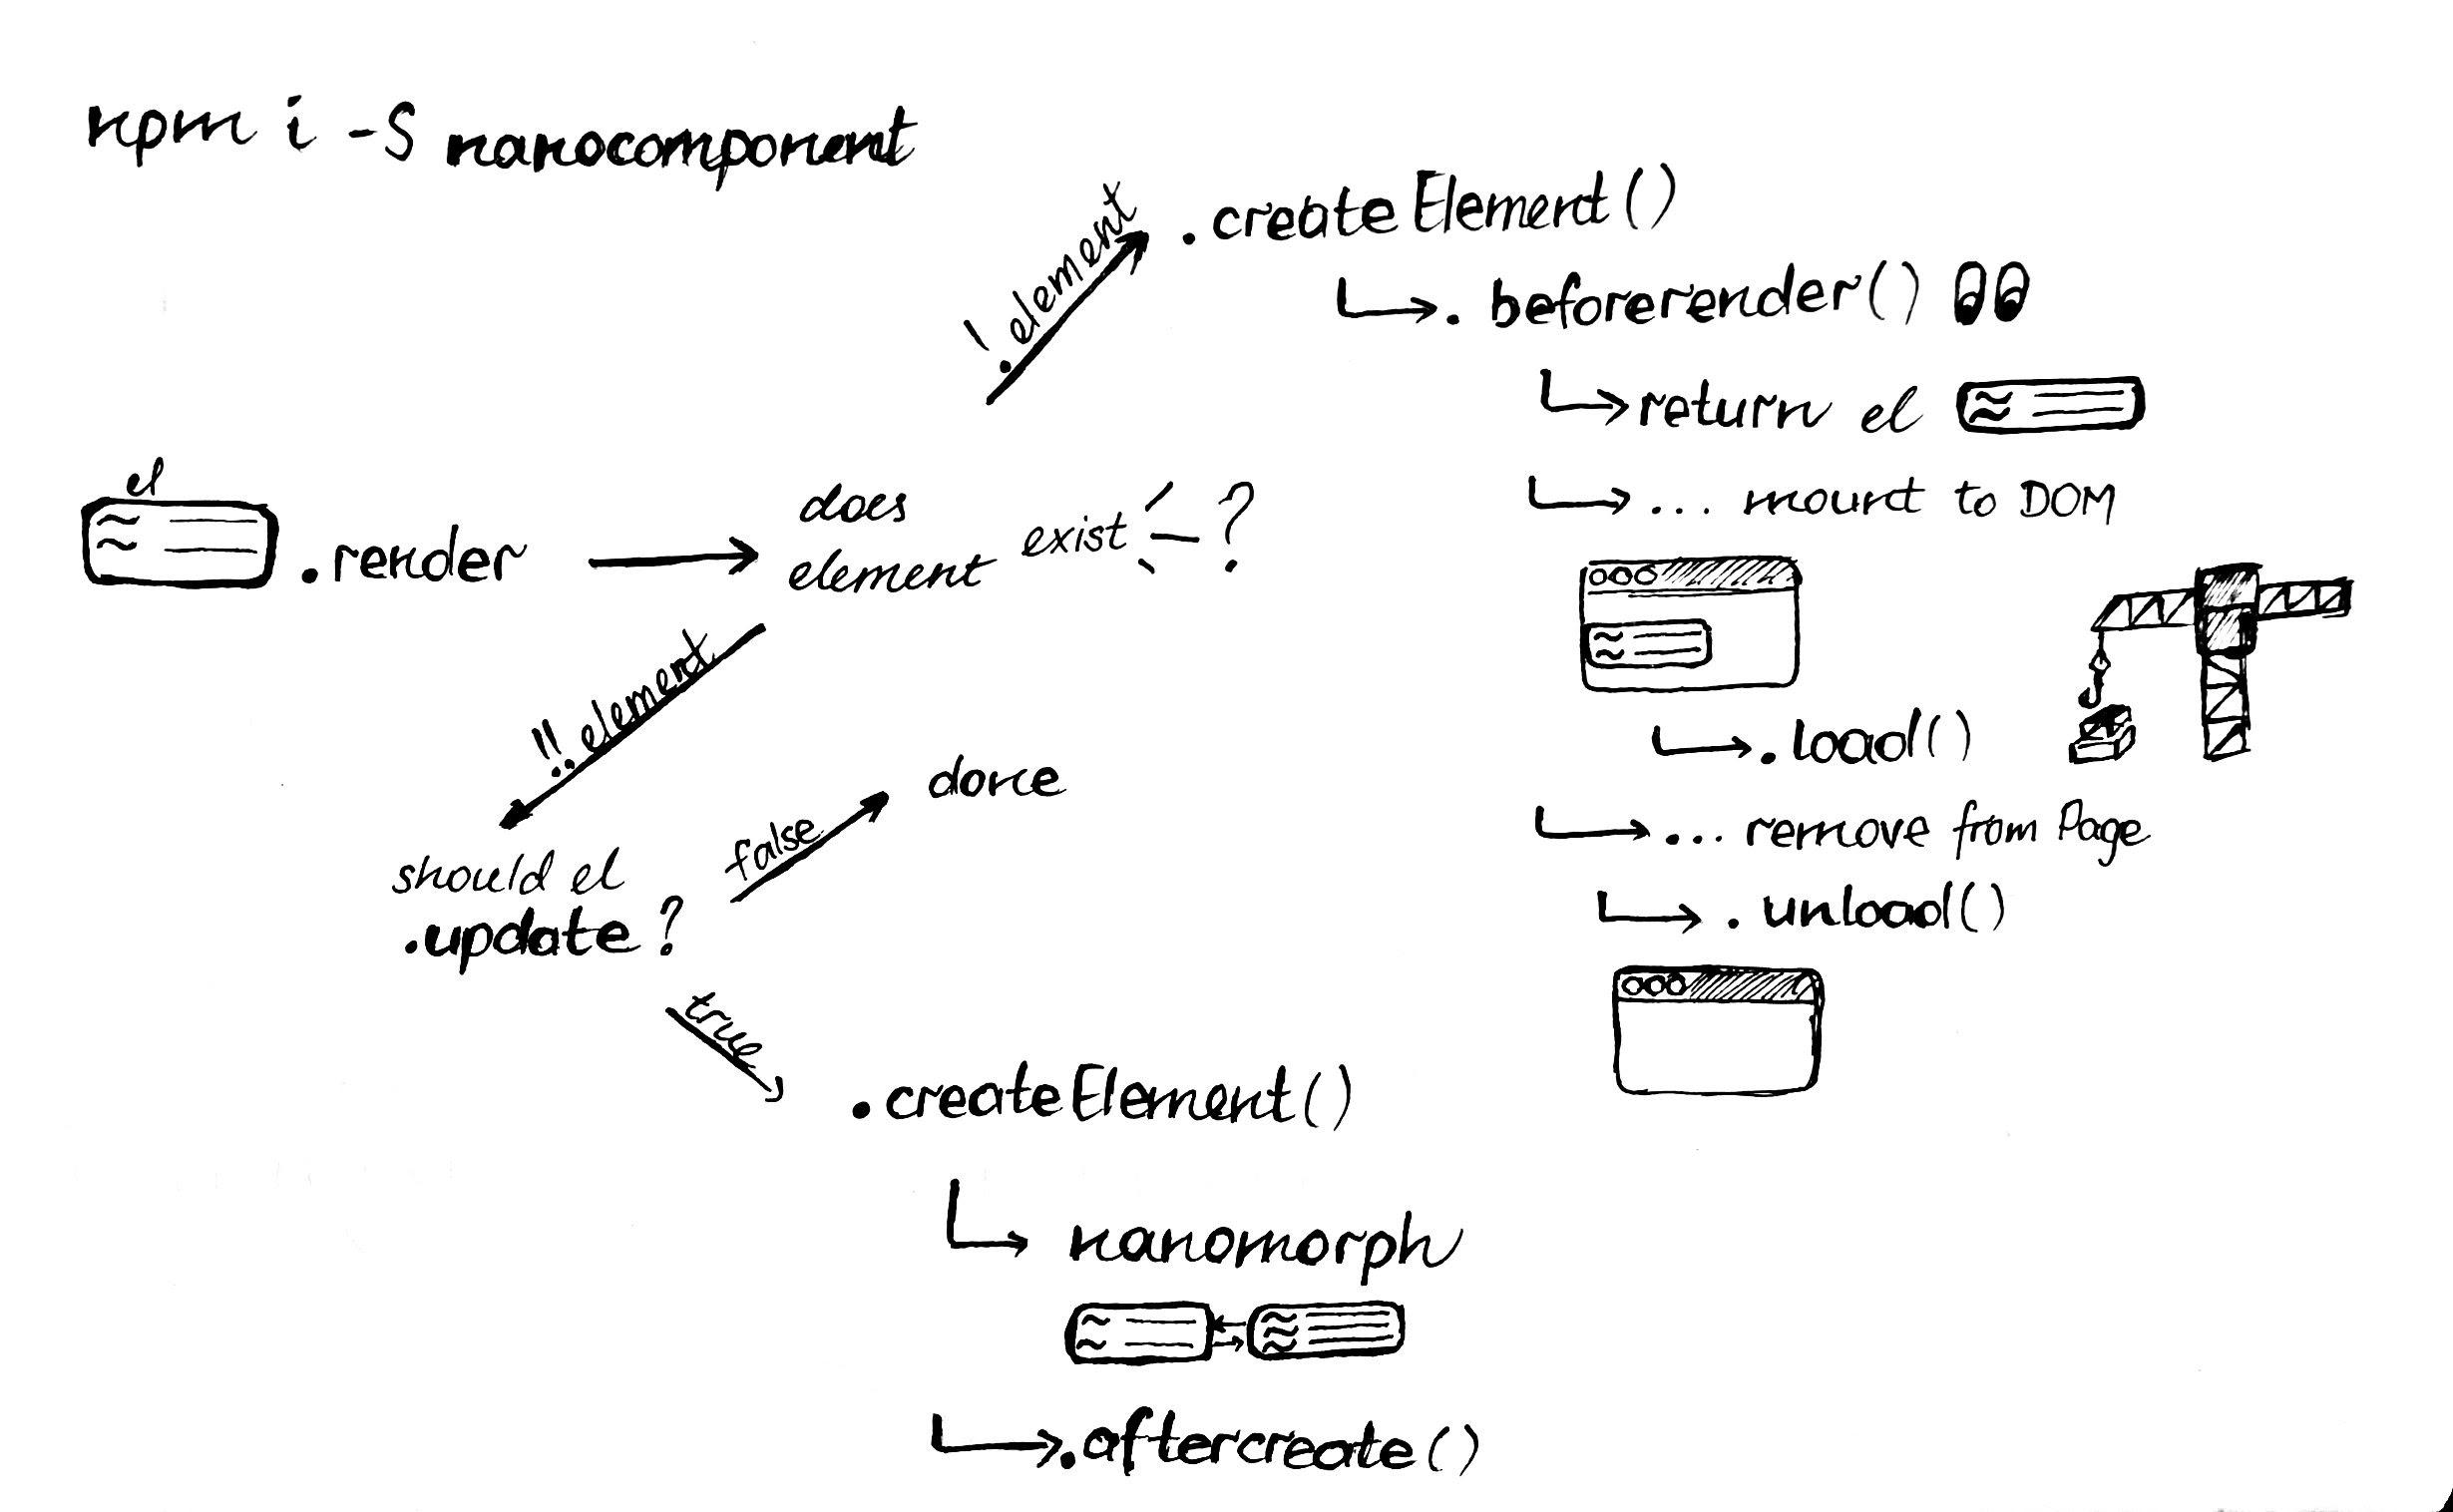 npm i -S nanocomponent
!element
.createElement()
. beforerender()
return el
... mount to DOM
.load()
... remove from Page
. unload()
el
.render
does
element exist ?
!!element
should el
.update ?
false
done
true
.createElement()
nanomorph
.aftercreate()